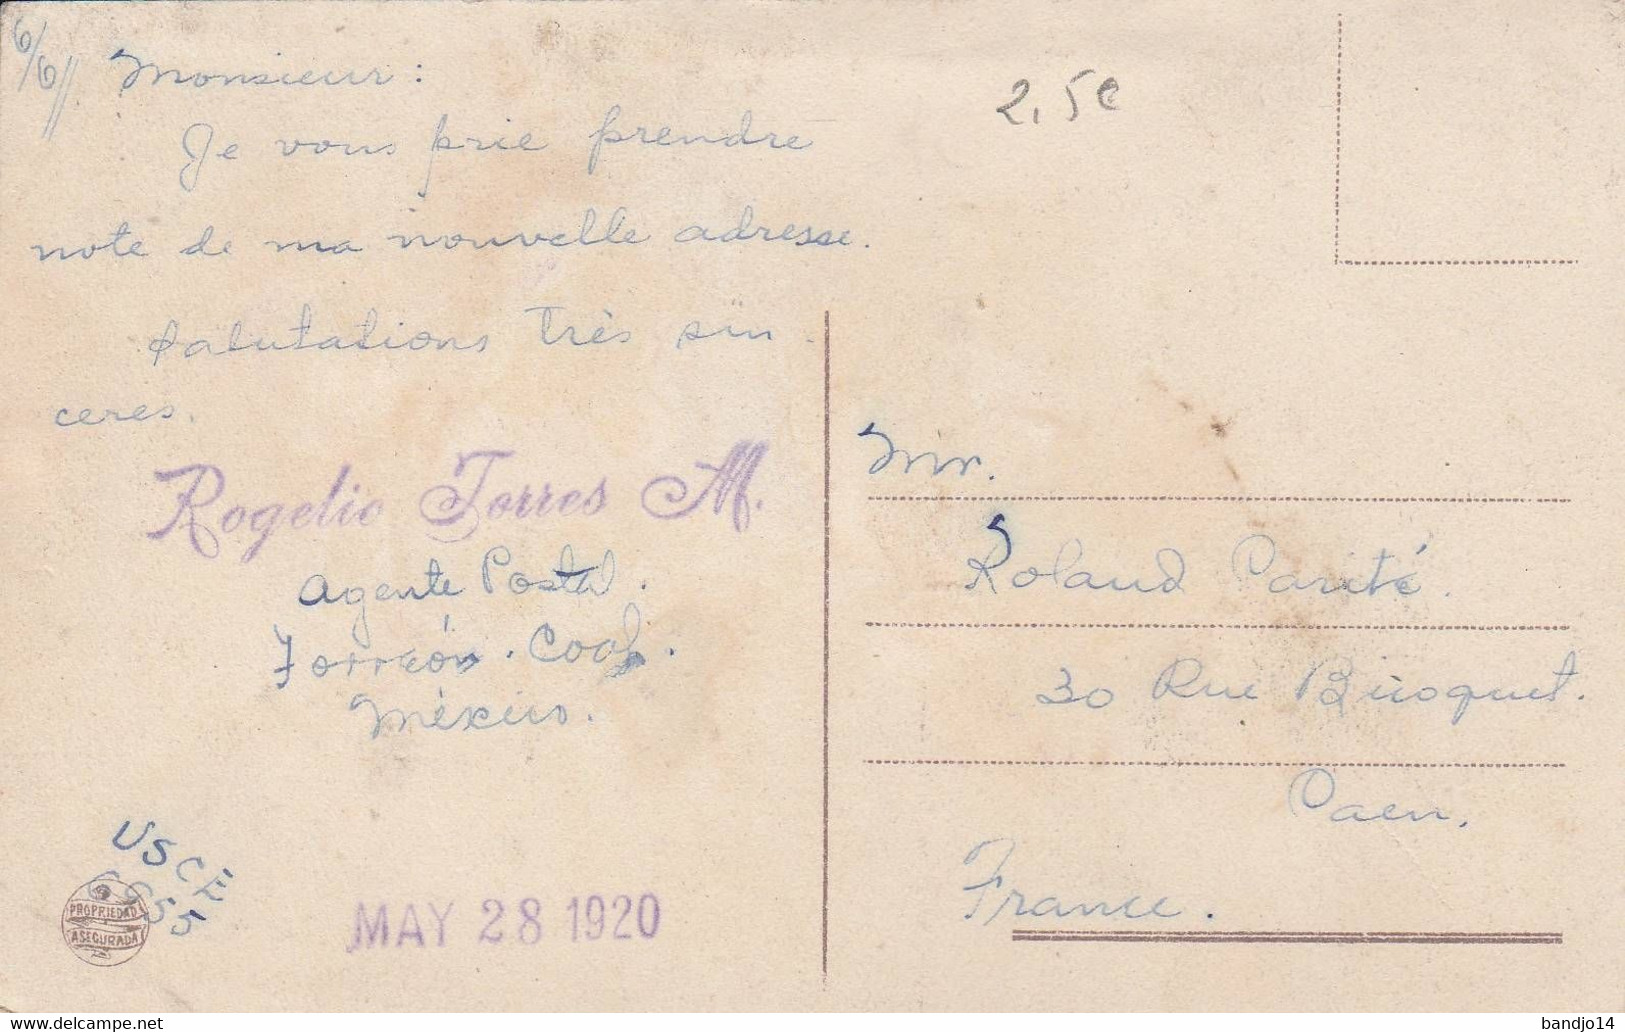 6/6//
Monsieur:
Je vous prie prendre
note de ma nouvelle adresse.
Salutations très sin
ceres.
Rogelio Torres M.
Agente Postal.
Torreón. Coah.
México.
USCE
6955
PROPRIEDAD
ASEGURADA
MAY 28 1920
2,5€
Mr.
Roland Parité.
30 Rue Bicoquet.
Caen.
France.
delcampe.net
bandjo14